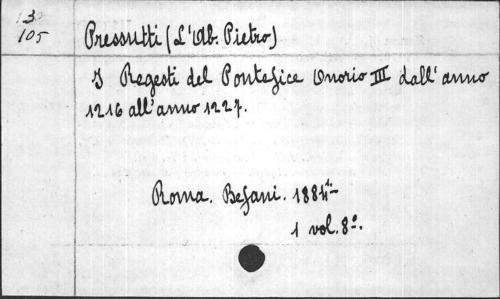 3
105
Pressutti (L'Ab. Pietro)
I Regesti del Pontefice Onorio III dall' anno
1216 all' anno 1227.
Roma. Befani. 1884
1 vol. 8º.